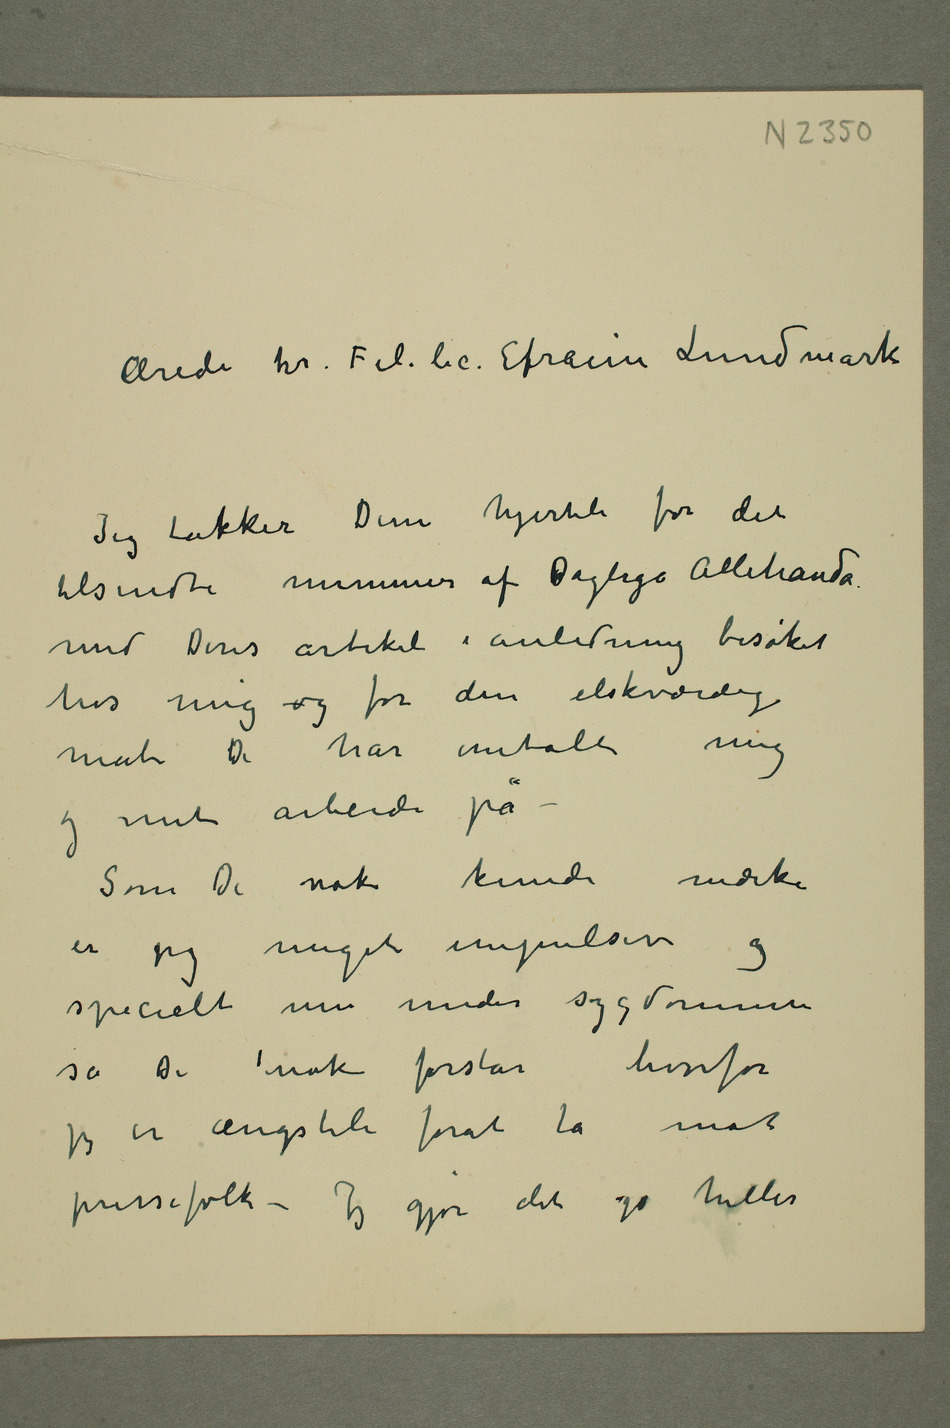 N 2350
Ærede hr. Fil. lic. Efraim Lundmark
Jeg takker Dem hjerteli for det
tilsendte nummer af Dagliga Allehanda
med Deres artikel i anledning besøket
hos mig og for den elskværdig
måte De har omtalt mig
og mit arbeide på –
Som De nok kunde mærke
er jeg meget impulsiv og
specielt nu under sygdommen
så De nok forstår hvorfor
jeg er ængsteli forat ta mot
pressefolk – Jeg gjør det jo heller